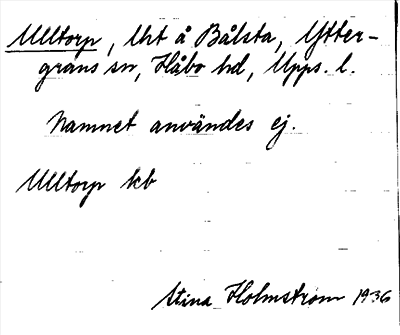 Ulltorp, lht å Bålsta, Ytter-
gräns sn, Håbo hd, Upps. l.
Namnet användes ej.
Ulltorp kb
Stina Holmström 1936